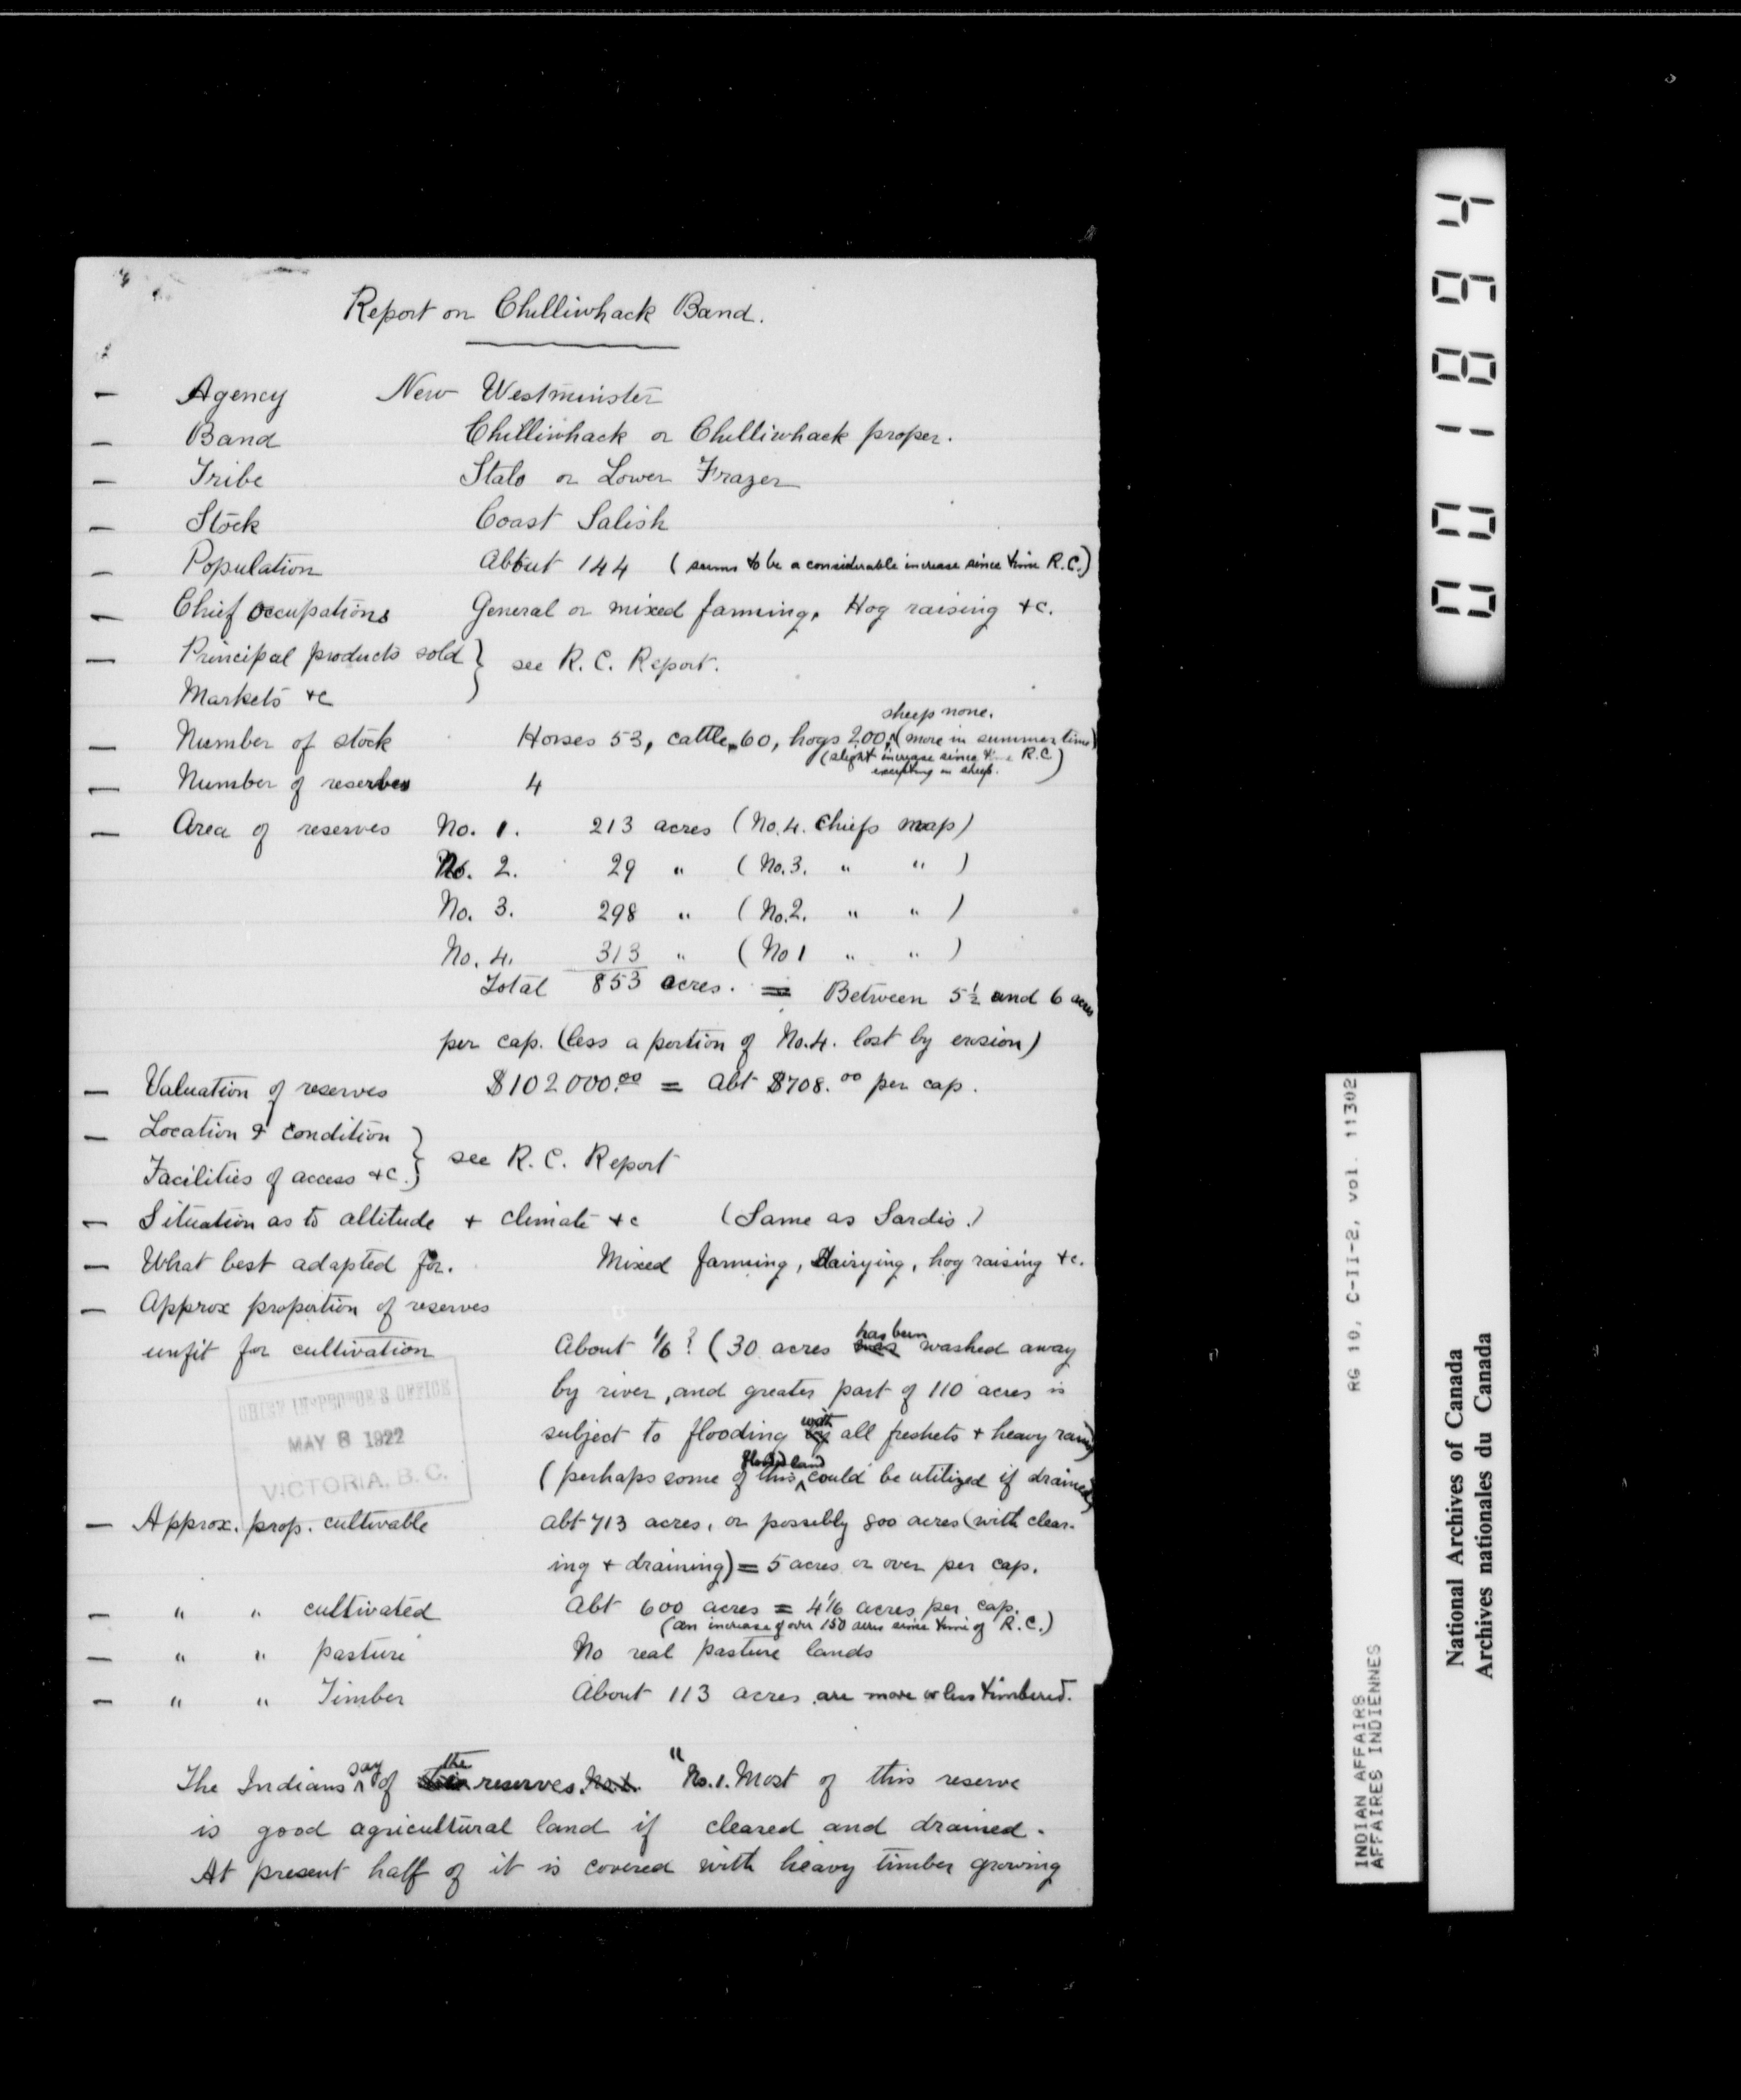 Report on Chilliwhack Band.
— Agency New Westminster
— Band Chilliwhack or Chilliwhack proper.
— Tribe Stalo or Lower Frazer
— Stock Coast Salish
— Population About 144 (seems to be a considerable increase since time R.C.)
— Chief occupations General or mixed farming, Hog raising +c.
— Principal products sold } see R. C. Report.
Markets +c
sheep none.
— Number of stock Horses 53, cattle 60, hogs 200, (more in summer time)
(slight increase since time R.C.
excepting in sheep.)
— Number of reserves 4
— Area of reserves No. 1. 213 acres (No.4. Chiefs map)
No. 2. 29 " (No.3. " ")
No. 3. 298 " (No.2. " ")
No. 4. 313 " (No 1 " ")
Total 853 acres. = Between 5½ and 6 acres
per cap. (less a portion of No.4. lost by erosion)
— Valuation of reserves $102000.00 = abt $708.00 per cap.
— Location & condition } see R. C. Report
Facilities of access +c.
— Situation as to altitude + climate +c (Same as Sardis.)
— What best adapted for. Mixed farming, dairying, hog raising +c.
— Approx proportion of reserves
unfit for cultivation About 1/6? (30 acres has been washed away
by river, and greater part of 110 acres is
subject to flooding with all freshets + heavy rains)
(perhaps some of this flooded land could be utilized if drained)
CHIEF INSPECTOR'S OFFICE
MAY 8 1922
VICTORIA, B. C.
— Approx. prop. cultivable abt 713 acres, or possibly 800 acres (with clear-
ing + draining) = 5 acres or over per cap.
— " " cultivated Abt 600 acres = 4 1/6 acres per cap.
(an increase of over 150 acres since time of R.C.)
— " " pasture No real pasture lands
— " " Timber About 113 acres are more or less timbered.
The Indians say of the reserves. "No.1. Most of this reserve
is good agricultural land if cleared and drained.
At present half of it is covered with heavy timber growing
001894
RG 10, C-II-2, vol. 11302
INDIAN AFFAIRS
AFFAIRES INDIENNES
National Archives of Canada
Archives nationales du Canada